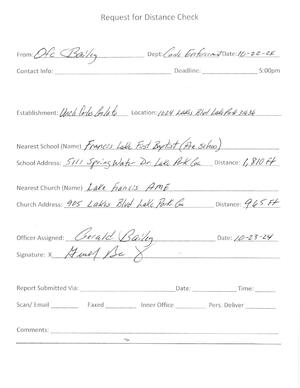 Request for Distance Check
From: Ofc Bailey Dept: Code Enforcement Date: 10-22-24
Contact Info: Deadline: 5:00pm
Establishment: Location: 1024 Lakes Blvd Lake Park 31636
Nearest School (Name) Francis Lake First Baptist (Pre School)
School Address: 5111 Spring Water Dr. Lake Park Ga Distance: 1,810 Ft
Nearest Church (Name) Lake Francis AME
Church Address: 905 Lakes Blvd Lake Park Ga Distance: 965 Ft
Officer Assigned: Gerald Bailey Date: 10-23-24
Signature: X
Report Submitted Via: Date: Time:
Scan/ Email Faxed Inner Office Pers. Deliver
Comments: